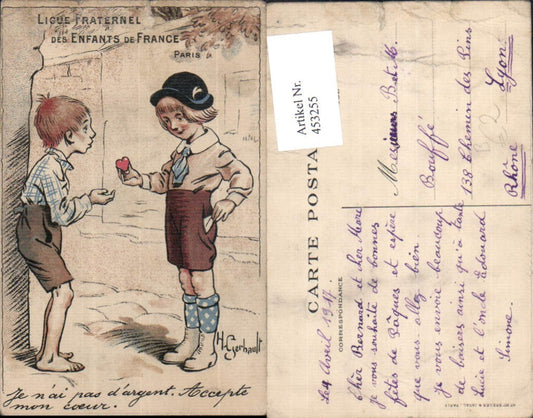 Ligue Fraternel
des Enfants de France
Paris
H Gerbault
Je n'ai pas d'argent. Accepte
mon cœur.
Artikel Nr.
453255
CARTE POSTA
CORRESPONDANCE
Messieurs B et M.
Bouffé
138 Chemin des Pins
Lyon
Rhône
Le 4 Avril 1917.
Chèr Bernard et cher Marc
je vous souhaite de bonnes
fêtes de Pâques et espère
que vous allez bien.
je vous envoie beaucoup
de baisers ainsi qu'à tante
Lucie et l'oncle Edouard
Simone